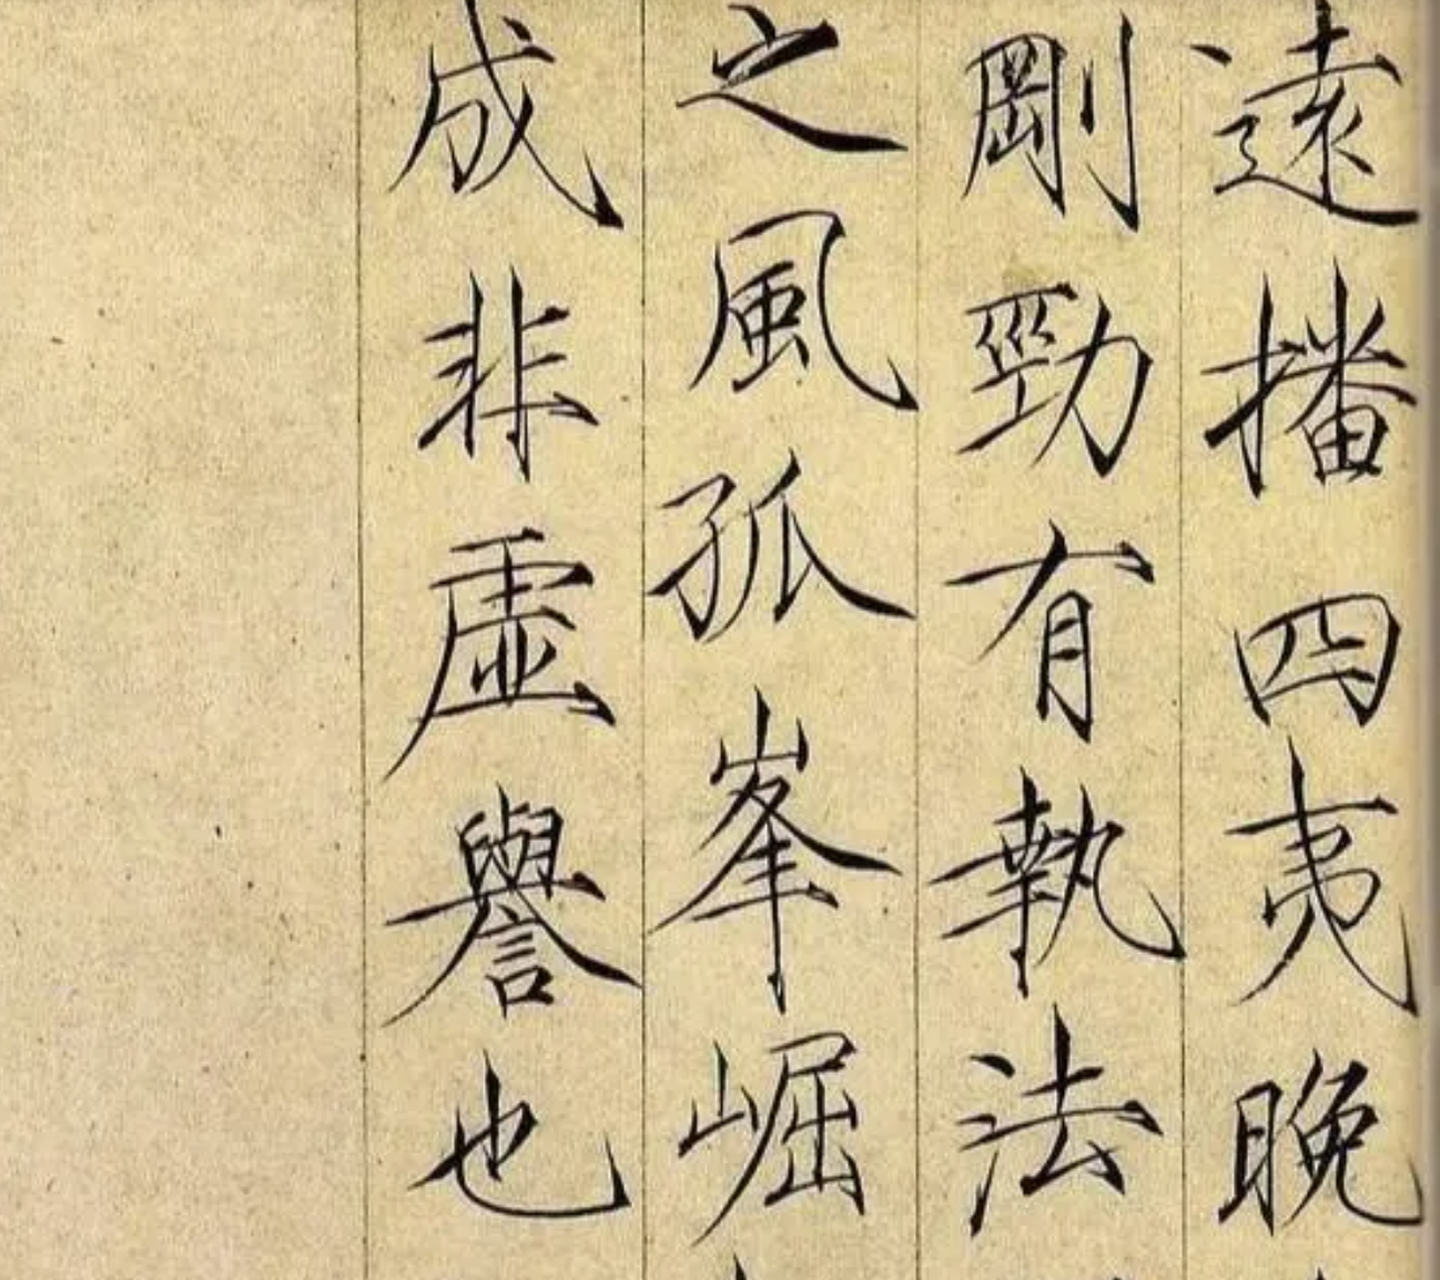 遠播四夷晚
剛勁有執法
之風孤峯崛
成非虛譽也